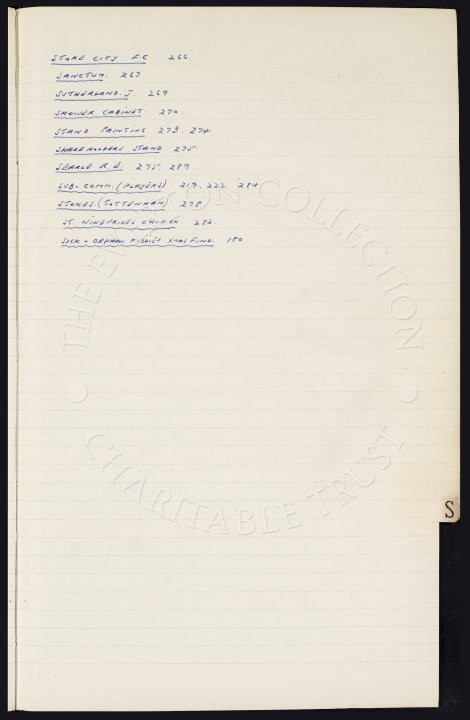 STOKE CITY F.C 266.
SANCTUM. 267
SUTHERLAND. J. 269
SHOWER CABINET. 270.
STAND PAINTING 273, 274
SHAREHOLDERS STAND 275.
SEARLE R.E. 275. 289.
SUB-COMM. (PLAYERS) 219. 223. 284
STOKES. (TOTTENHAM) 278
ST WINEFRIDES CHURCH 282.
SICK & ORPHAN KIDDIES XMAS FUND. 180
THE EVERTON COLLECTION
CHARITABLE TRUST
S